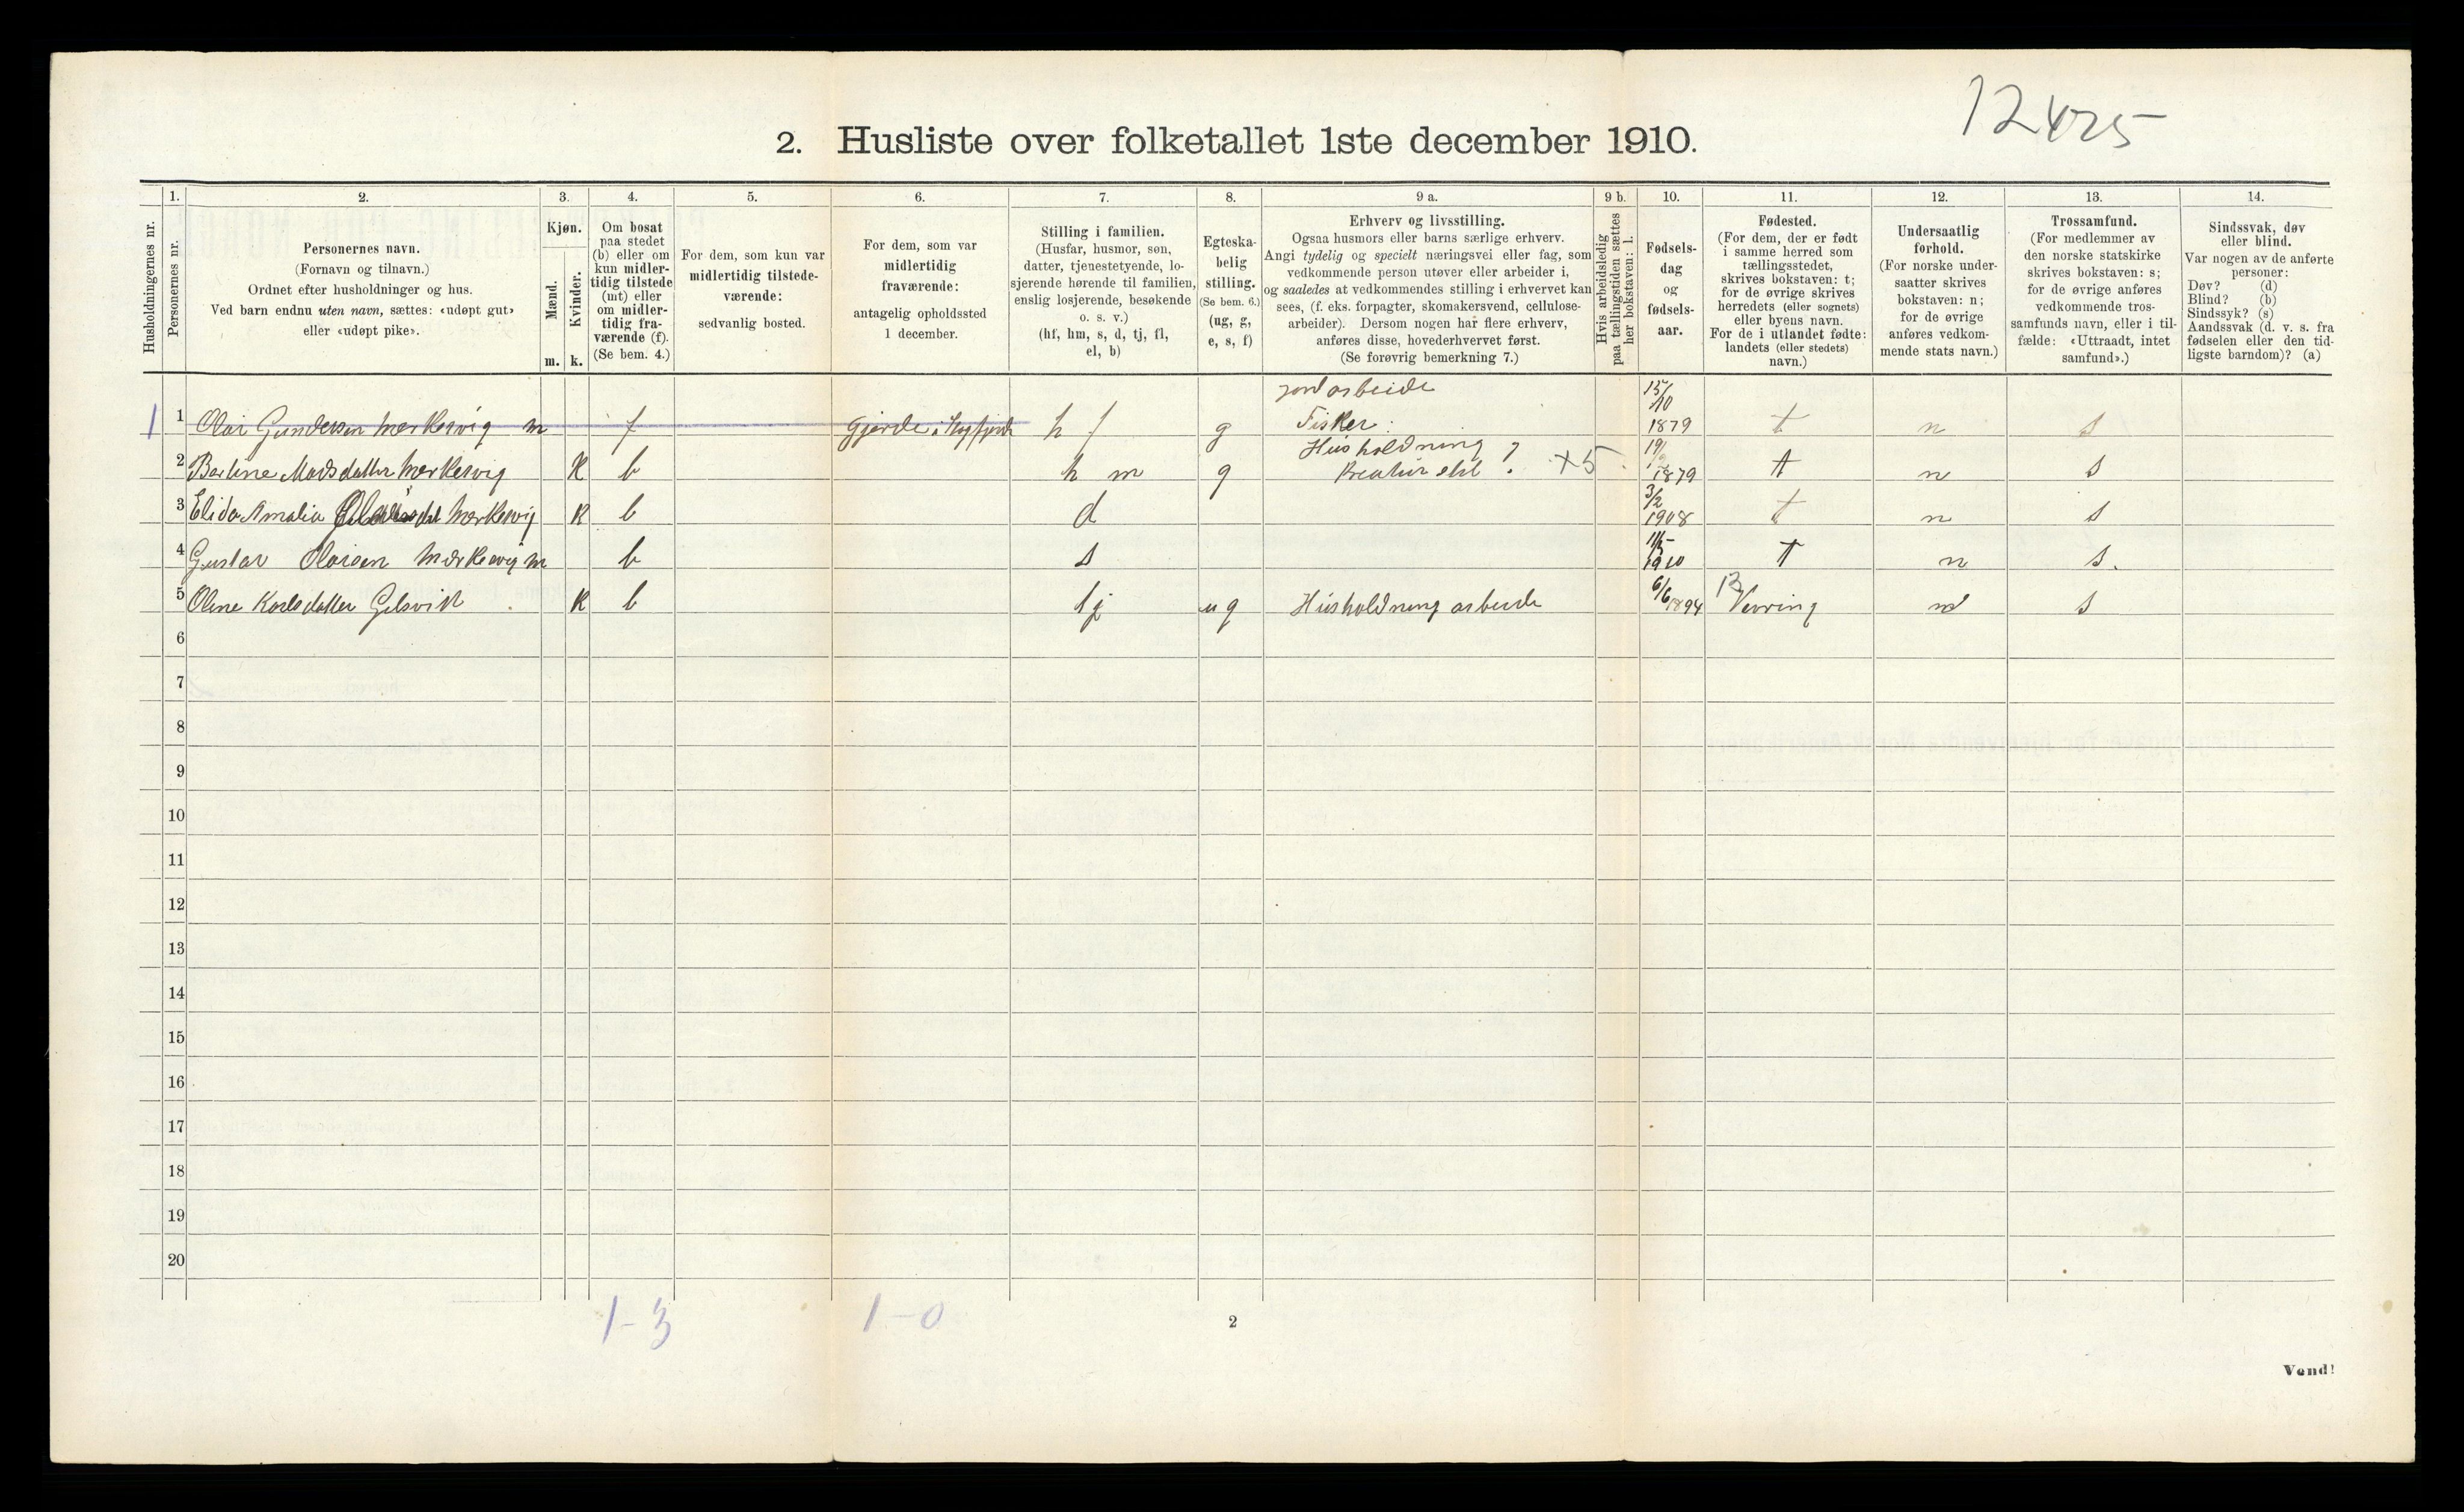 12425
2. Husliste over folketallet 1ste december 1910.
Husholdningernes nr.
1.
Personernes nr.
2.
Personernes navn.
(Fornavn og tilnavn.)
Ordnet efter husholdninger og hus.
Ved barn endnu uten navn, sættes: «udøpt gut»
eller «udøpt pike».
3.
Kjøn.
Mænd.
m.
Kvinder.
k.
4.
Om bosat
paa stedet
(b) eller om
kun midler-
tidig tilstede
(mt) eller
om midler-
tidig fra-
værende (f).
(Se bem. 4.)
5.
For dem, som kun var
midlertidig tilstede-
værende:
sedvanlig bosted.
6.
For dem, som var
midlertidig
fraværende:
antagelig opholdssted
1 december.
7.
Stilling i familien.
(Husfar, husmor, søn,
datter, tjenestetyende, lo-
sjerende hørende til familien,
enslig losjerende, besøkende
o. s. v.)
(hf, hm, s, d, tj, fl,
el, b)
8.
Egteska-
belig
stilling.
(Se bem. 6.)
(ug, g,
e, s, f)
9 a.
Erhverv og livsstilling.
Ogsaa husmors eller barns særlige erhverv.
Angi tydelig og specielt næringsvei eller fag, som
vedkommende person utøver eller arbeider i,
og saaledes at vedkommendes stilling i erhvervet kan
sees, (f. eks. forpagter, skomakersvend, cellulose-
arbeider). Dersom nogen har flere erhverv,
anføres disse, hovederhvervet først.
(Se forøvrig bemerkning 7.)
9 b.
Hvis arbeidsledig
paa tællingstiden sættes
her bokstaven: l.
10.
Fødsels-
dag
og
fødsels-
aar.
11.
Fødested.
(For dem, der er født
i samme herred som
tællingsstedet,
skrives bokstaven: t;
for de øvrige skrives
herredets (eller sognets)
eller byens navn.
For de i utlandet fødte:
landets (eller stedets)
navn.)
12.
Undersaatlig
forhold.
(For norske under-
saatter skrives
bokstaven: n;
for de øvrige
anføres vedkom-
mende stats navn.)
13.
Trossamfund.
(For medlemmer av
den norske statskirke
skrives bokstaven: s;
for de øvrige anføres
vedkommende tros-
samfunds navn, eller i til-
fælde: «Uttraadt, intet
samfund».)
14.
Sindssvak, døv
eller blind.
Var nogen av de anførte
personer:
Døv? (d)
Blind? (b)
Sindssyk? (s)
Aandssvak (d. v. s. fra
fødselen eller den tid-
ligste barndom)? (a)
jordarbeide 15/10
1 1 Olai Gundersen Mærkesvig m f Gjerde i h f g Fisker 1879 t n s
Husholdning 19/
2 Berline Madsdatter Mærkesvig K b h m g Kreaturstel +5 1879 t n s
3/2
3 Elida Amalia Mærkesvig K b d 1908 t n s
11/5
4 Gustav Olaisen Mærkesvig m b s 1910 t n s.
5 Oline Karlsdatter Gilsvik K b tj ug Husholdning arbeide 6/6 1894 Vevring n s
6
7
8
9
10
11
12
13
14
15
16
17
18
19
20
1-3 1-0
2
Vend!